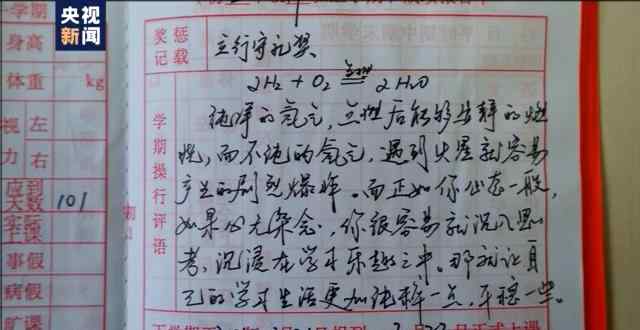 央视
新闻
学期
身高
体重 kg
视 左
力 右
应到
天数 101
实际
上课
事假
病假
旷课
奖惩
记载
立行守礼奖
学期操行评语
2H₂ + O₂ 点燃 2H₂O
纯净的氢气，点燃后能够安静的燃
烧，而不纯的氢气，遇到火星就容易
产生的剧烈爆炸。而正如你心态一般，
如果心无杂念，你很容易就沉入思
考，沉浸在学习乐趣之中。那就让自
己的学习生活更加纯粹一点，平稳一些。